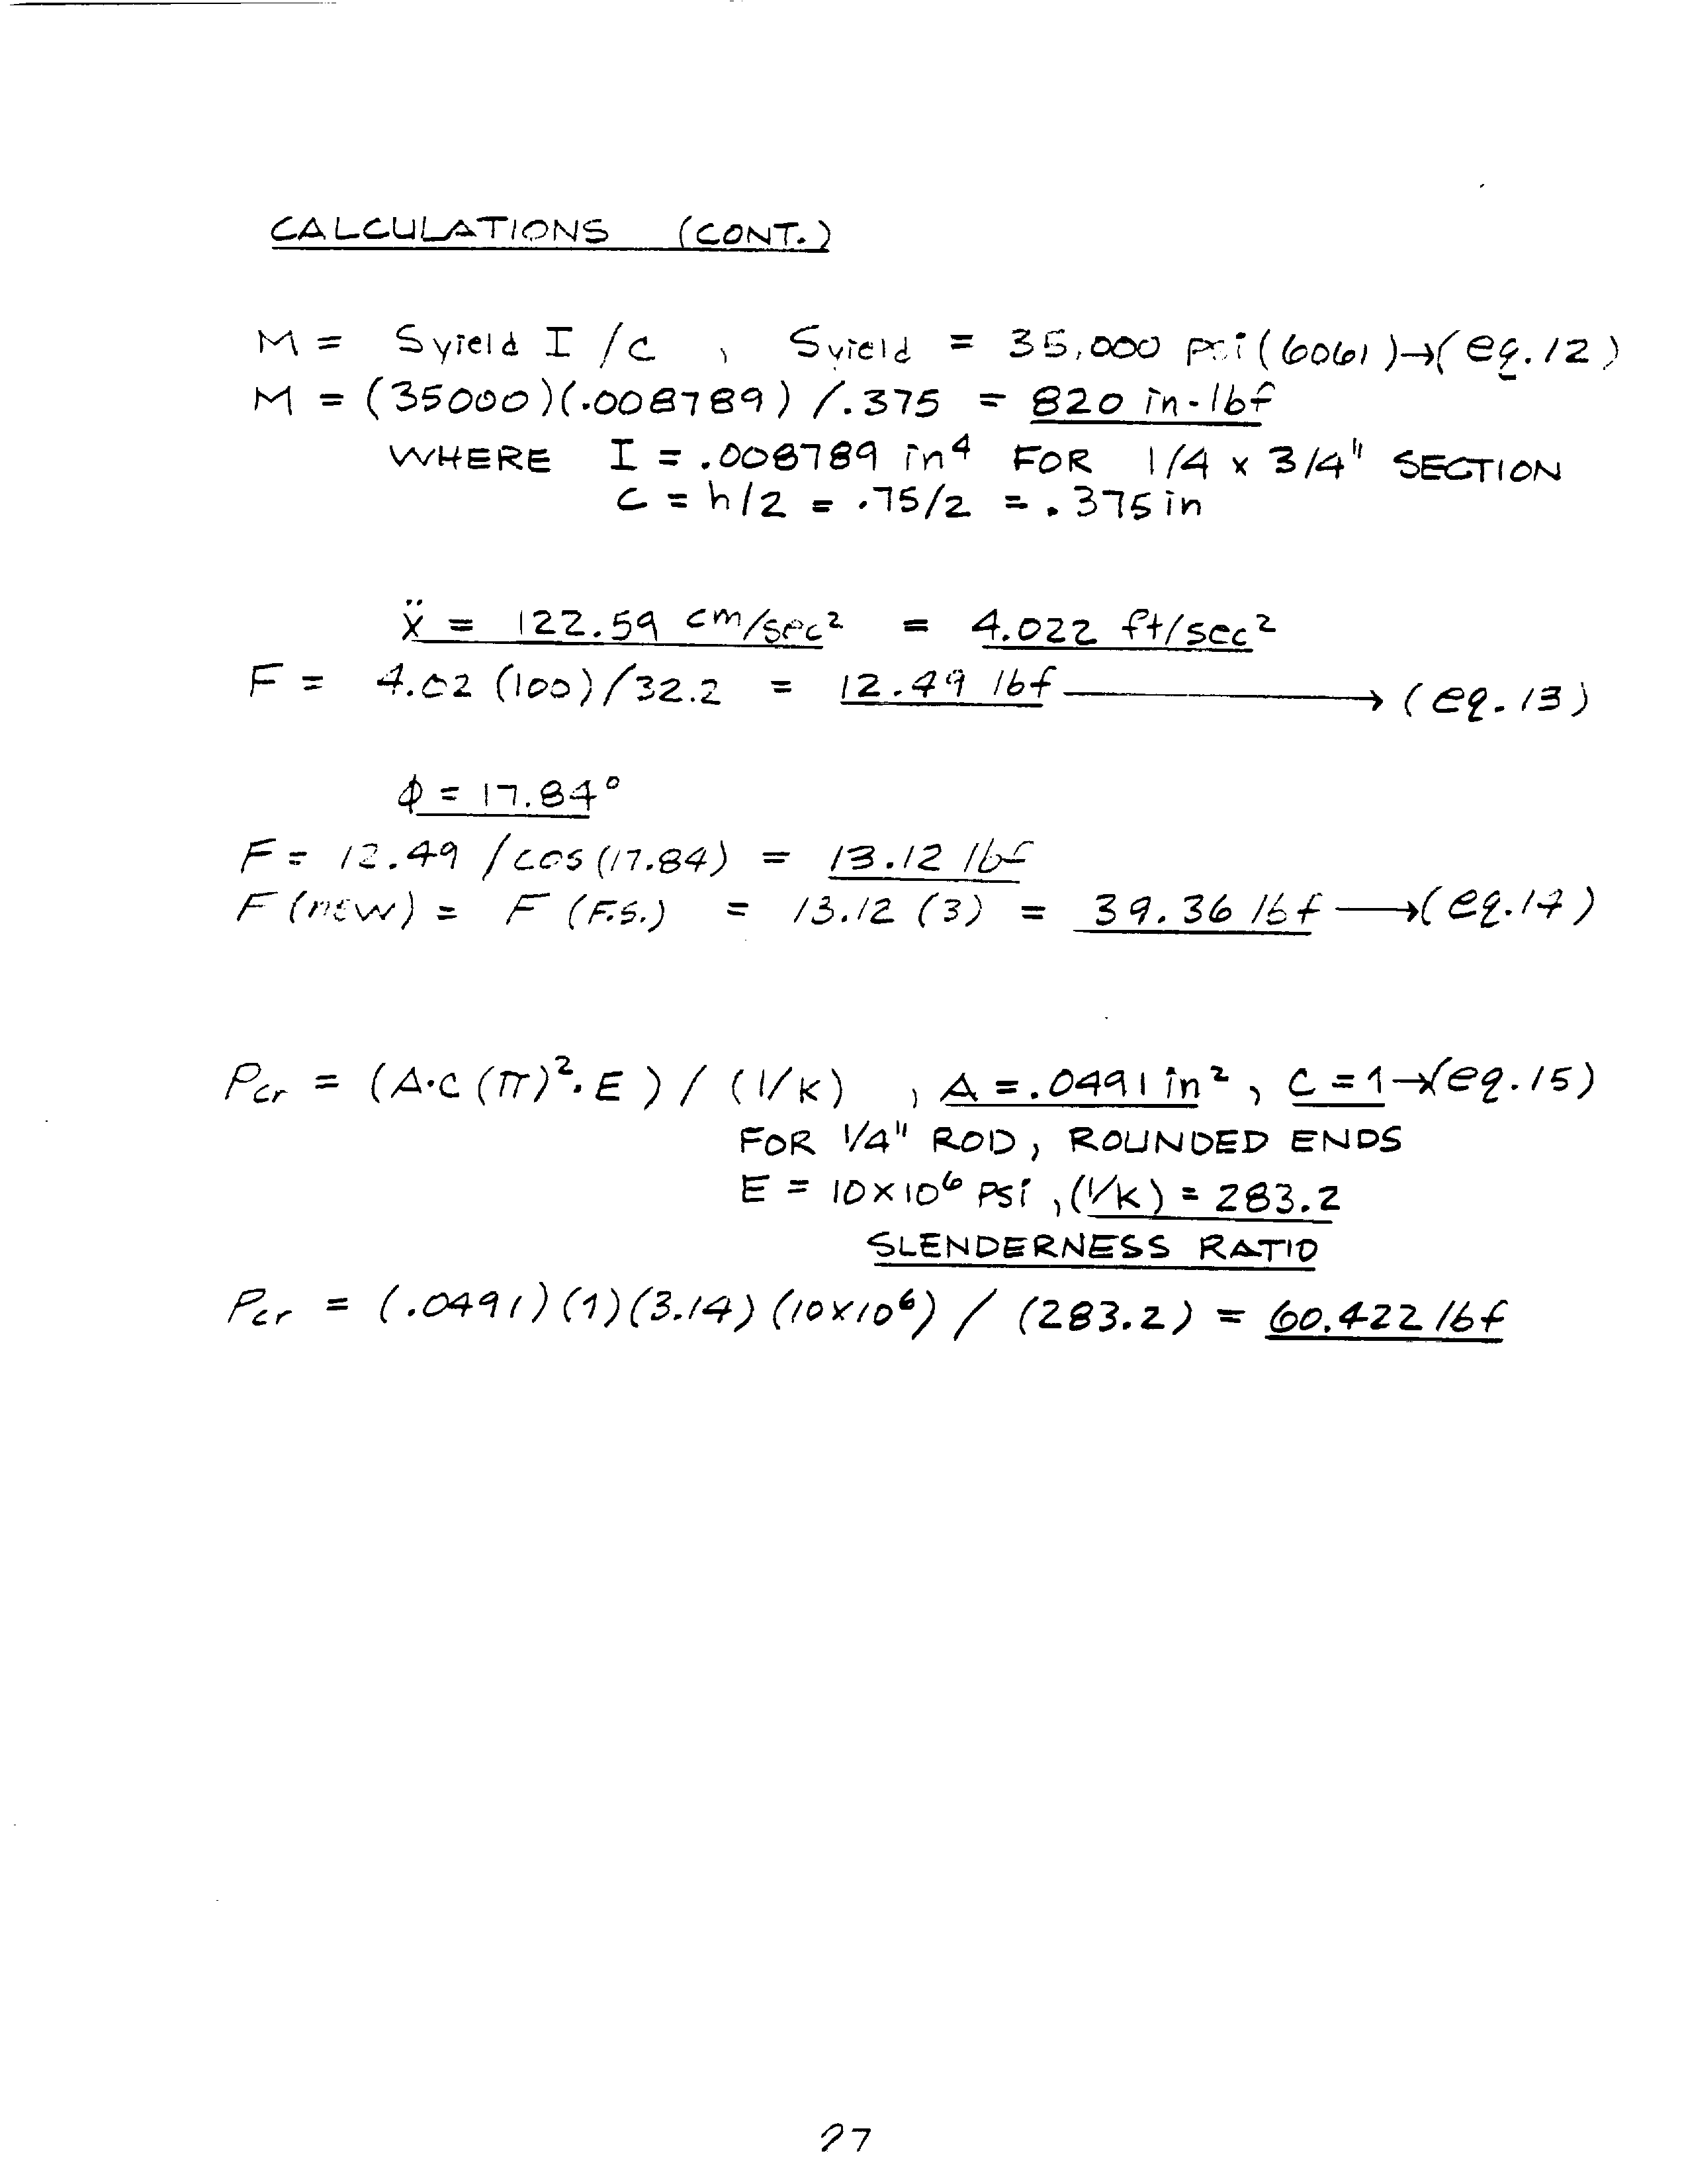 CALCULATIONS (CONT.)
M = Syield I /c , Syield = 35,000 psi (6061) → (eq. 12)
M = (35000)(.008789) /.375 = 820 in-lbf
WHERE I = .008789 in⁴ FOR 1/4 x 3/4" SECTION
C = h/2 = .75/2 = .375 in
ẍ = 122.59 cm/sec² = 4.022 ft/sec²
F = 4.02 (100)/32.2 = 12.49 lbf → (eq. 13)
ϕ = 17.84°
F = 12.49 /cos(17.84) = 13.12 lbf
F (new) = F (F.S.) = 13.12 (3) = 39.36 lbf → (eq. 14)
Pcr = (A·C (π)²·E ) / (l/k) , A = .0491 in², C = 1 → (eq. 15)
FOR 1/4" ROD, ROUNDED ENDS
E = 10x10⁶ psi , (l/k) = 283.2
SLENDERNESS RATIO
Pcr = (.0491)(1)(3.14)(10x10⁶) / (283.2) = 60.422 lbf
27